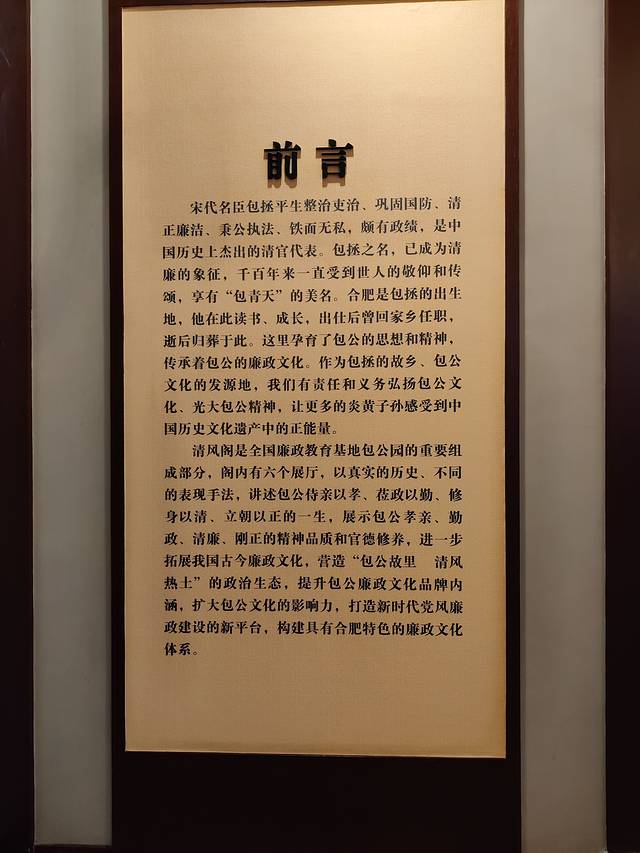 前言
宋代名臣包拯平生整治吏治、巩固国防、清
正廉洁、秉公执法、铁面无私，颇有政绩，是中
国历史上杰出的清官代表。包拯之名，已成为清
廉的象征，千百年来一直受到世人的敬仰和传
颂，享有“包青天”的美名。合肥是包拯的出生
地，他在此读书、成长，出仕后曾回家乡任职，
逝后归葬于此。这里孕育了包公的思想和精神，
传承着包公的廉政文化。作为包拯的故乡、包公
文化的发源地，我们有责任和义务弘扬包公文
化、光大包公精神，让更多的炎黄子孙感受到中
国历史文化遗产中的正能量。
清风阁是全国廉政教育基地包公园的重要组
成部分，阁内有六个展厅，以真实的历史、不同
的表现手法，讲述包公侍亲以孝、莅政以勤、修
身以清、立朝以正的一生，展示包公孝亲、勤
政、清廉、刚正的精神品质和官德修养，进一步
拓展我国古今廉政文化，营造“包公故里　清风
热土”的政治生态，提升包公廉政文化品牌内
涵，扩大包公文化的影响力，打造新时代党风廉
政建设的新平台，构建具有合肥特色的廉政文化
体系。